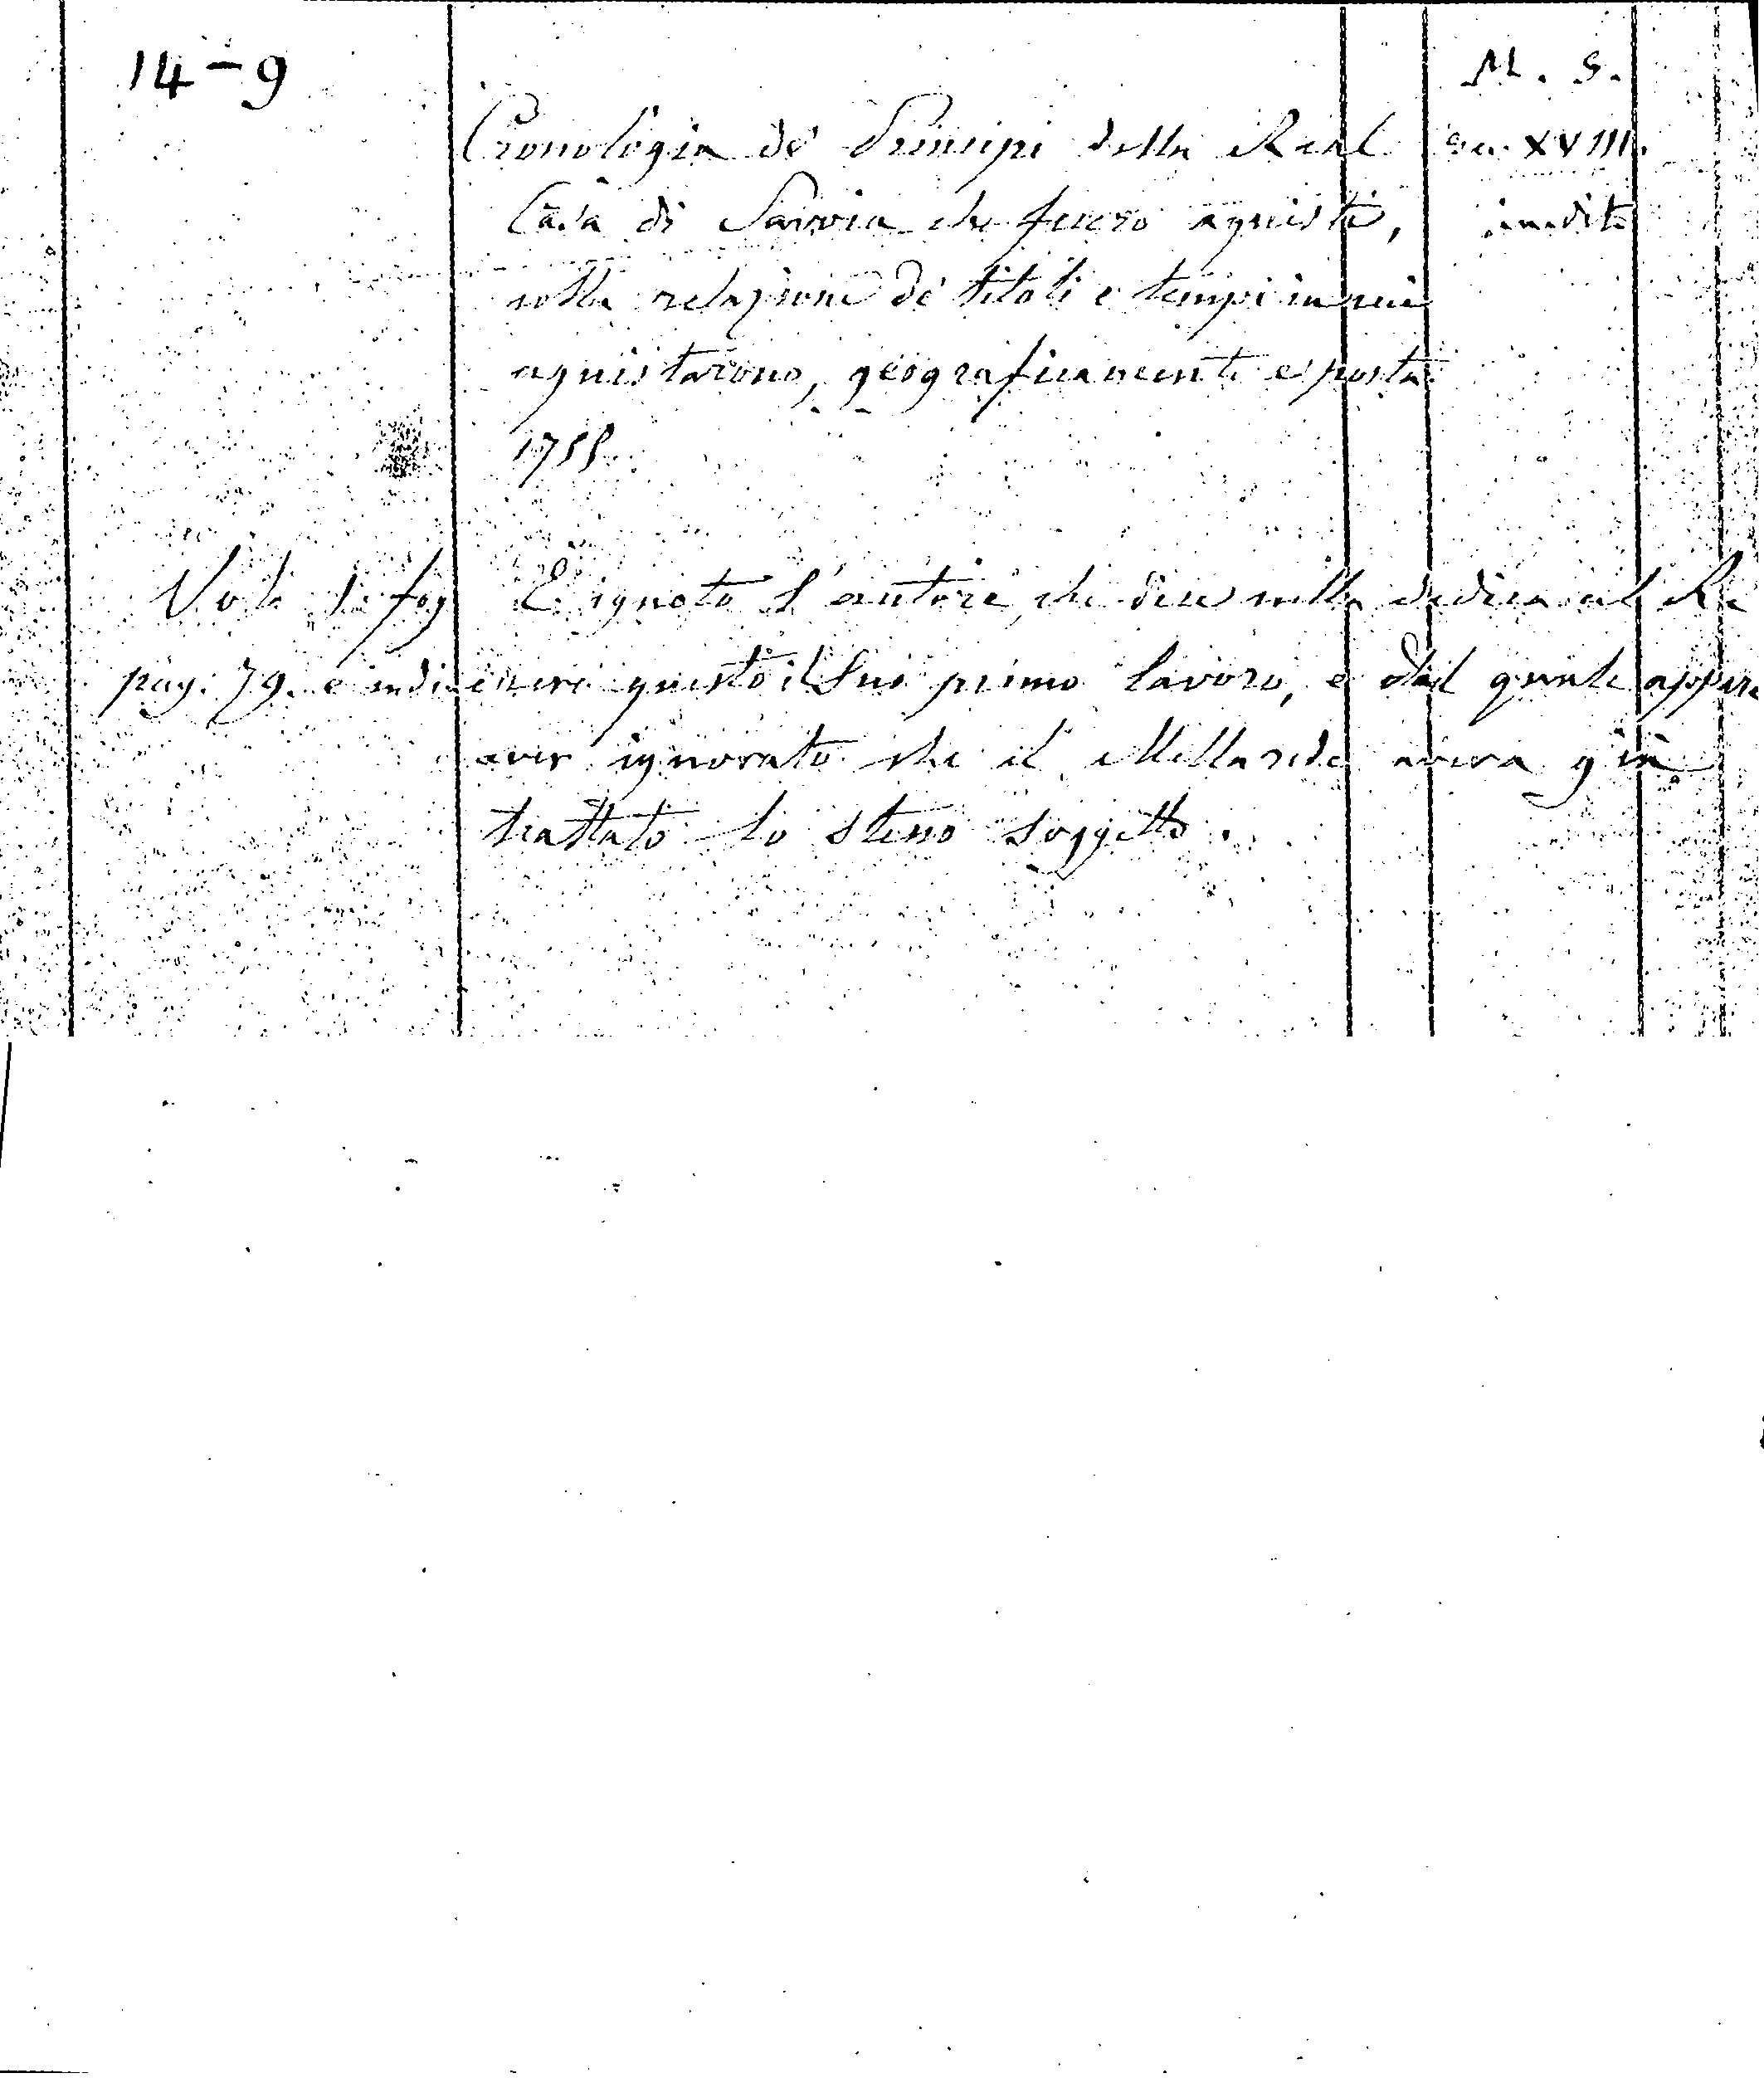 14-9
M. S.
Cronologia de' Principi della Real
Sec. XVIII.
Casa di Savoia che fecero aquisti,
inedito
colla relazione de' titoli e tempi in cui
aquistarono, geograficamente esposta
1755
Vol. di fog E' ignoto l'autore, che dice nella dedica al Re
pag. 79. e indi essere questo il suo primo lavoro, e dal quale appare
aver ignorato che il Mellarede aveva già
trattato lo stesso soggetto.